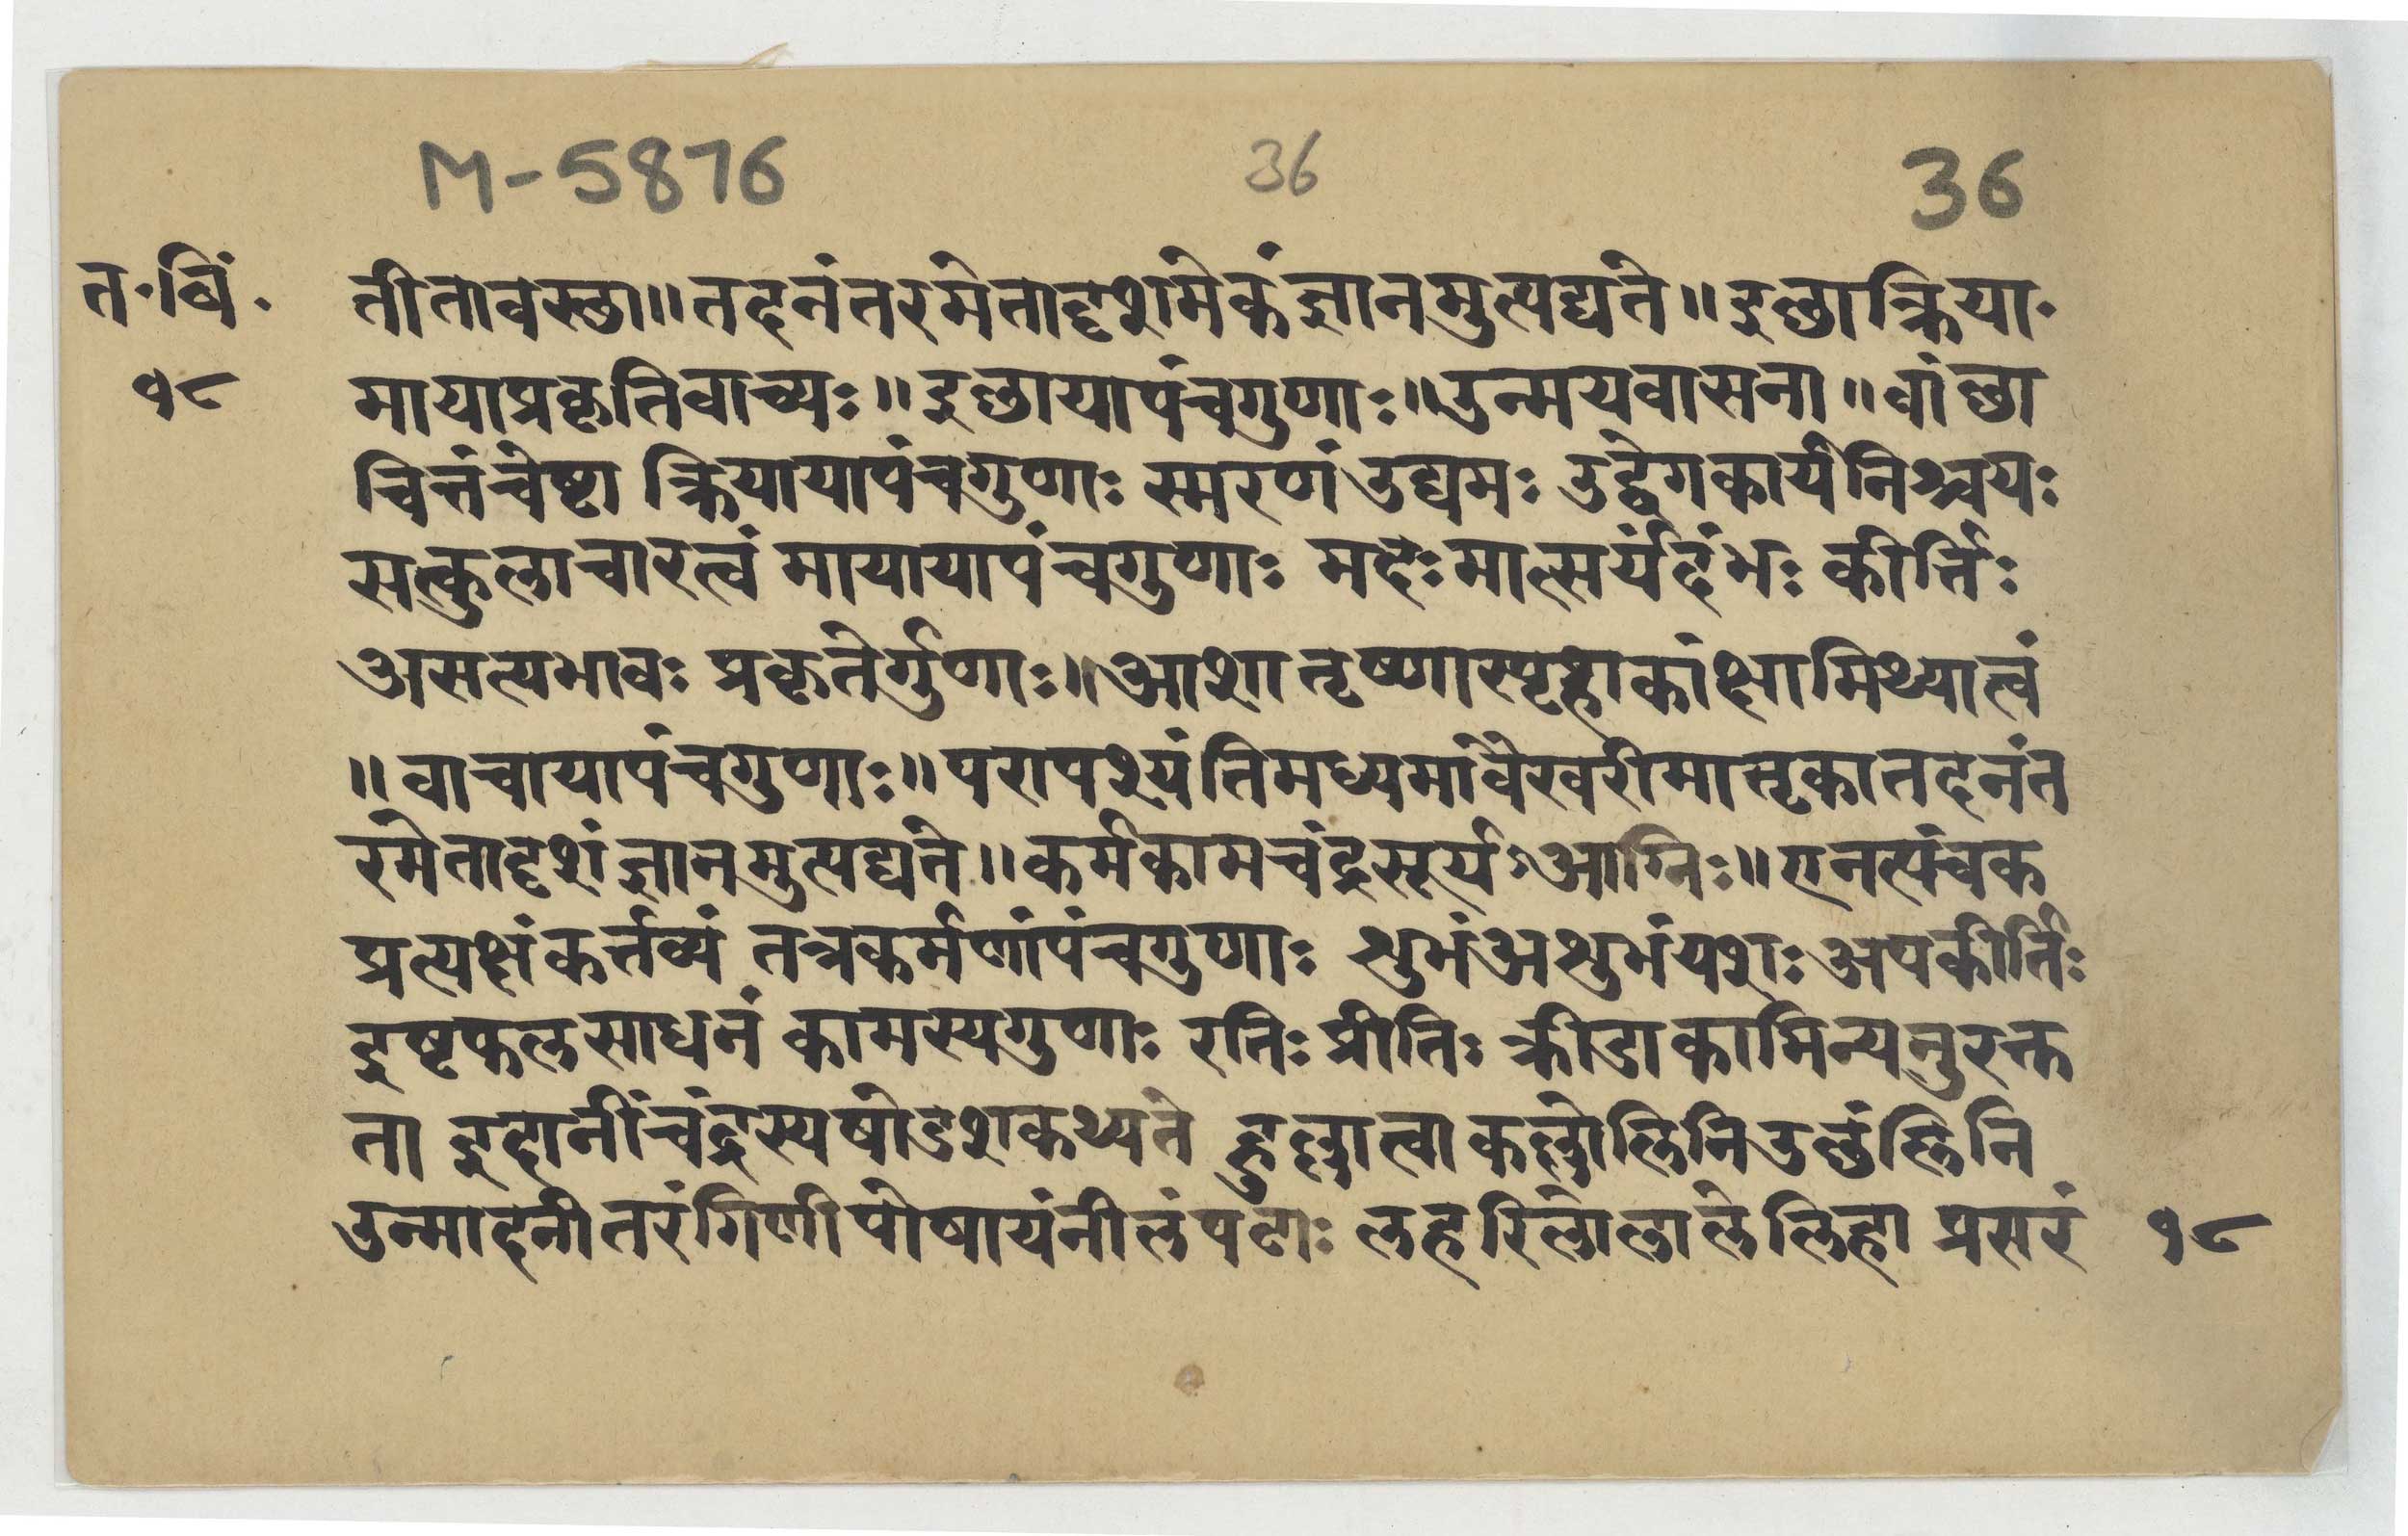 M-5876 36 36
त॰ बिं॰ तीतावस्छा॥ तदनंतरमेतादृशमेकंज्ञानमुत्पद्यते॥ इछाक्रिया॰
१८ मायाप्रकृतिवाच्यः॥ इछायापंचगुणाः॥ उन्मयवासना॥ वांछा
चित्तंचेष्टा क्रियायापंचगुणाः स्मरणं उद्यमः उद्वेगकार्यनिश्चयः
सत्कुलाचारत्वं मायायापंचगुणाः मदःमात्सर्यंदंभः कीर्त्तिः
असत्यभावः प्रकृतेर्गुणाः॥ आशातृष्णास्पृहाकांक्षामिथ्यात्वं
॥ वाचायापंचगुणाः॥ परापश्यंतिमध्यमांवैखरीमातृकातदनंत
रमेतादृशंज्ञानमुत्पद्यते॥ कर्मकामचंद्रसूर्यऽआग्निः॥ एनत्पंचक
प्रत्यक्षंकर्त्तव्यं तत्रकर्मणांपंचगुणाः शुभंअशुभंयशःअपकीर्तिः
इष्टफलसाधनं कामस्यगुणाः रतिः प्रीतिः क्रीडाकामिन्यनुरक्त
ता इदानींचंद्रस्यषोडशकथ्यते हुल्लात्वाकल्लोलिनिउछंलिनि
उन्मादनीतरंगिणीपोषायंनीलंपटाः लहरिलोलालेलिहा प्रसरं १८